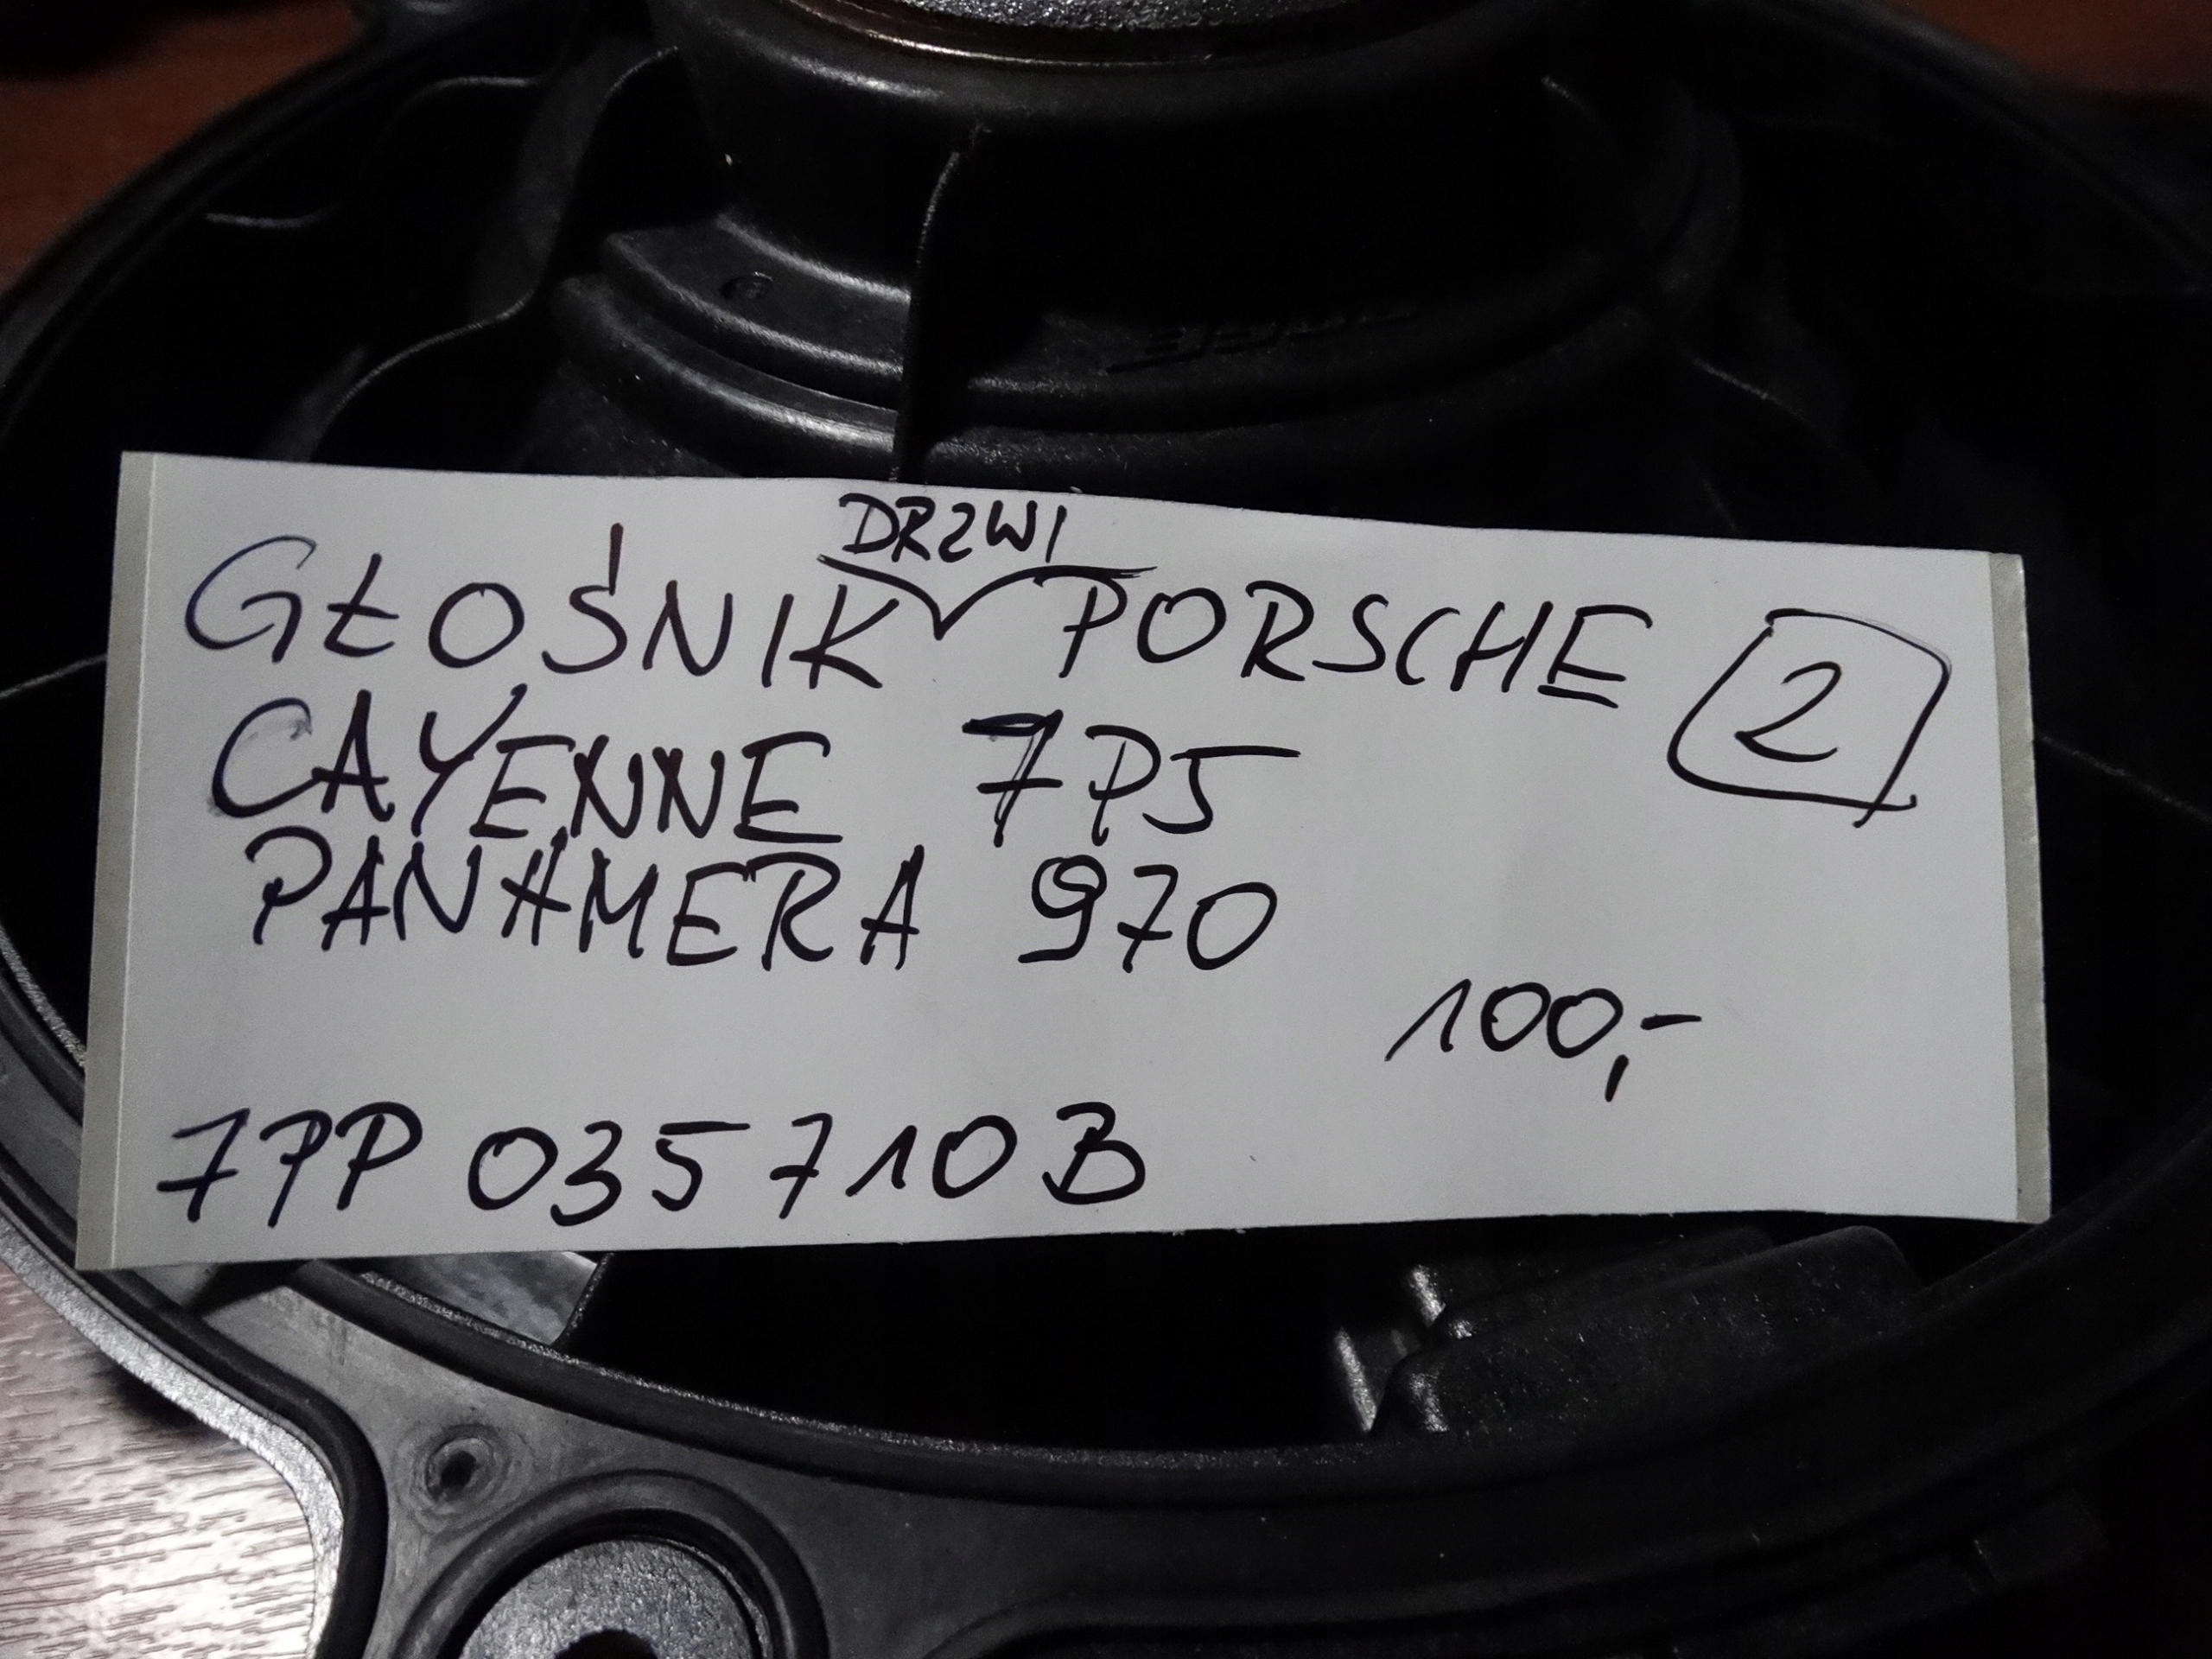 DRZWI
GŁOŚNIK PORSCHE 2
CAYENNE 7P5
PANAMERA 970
100,-
7PP 035 710 B